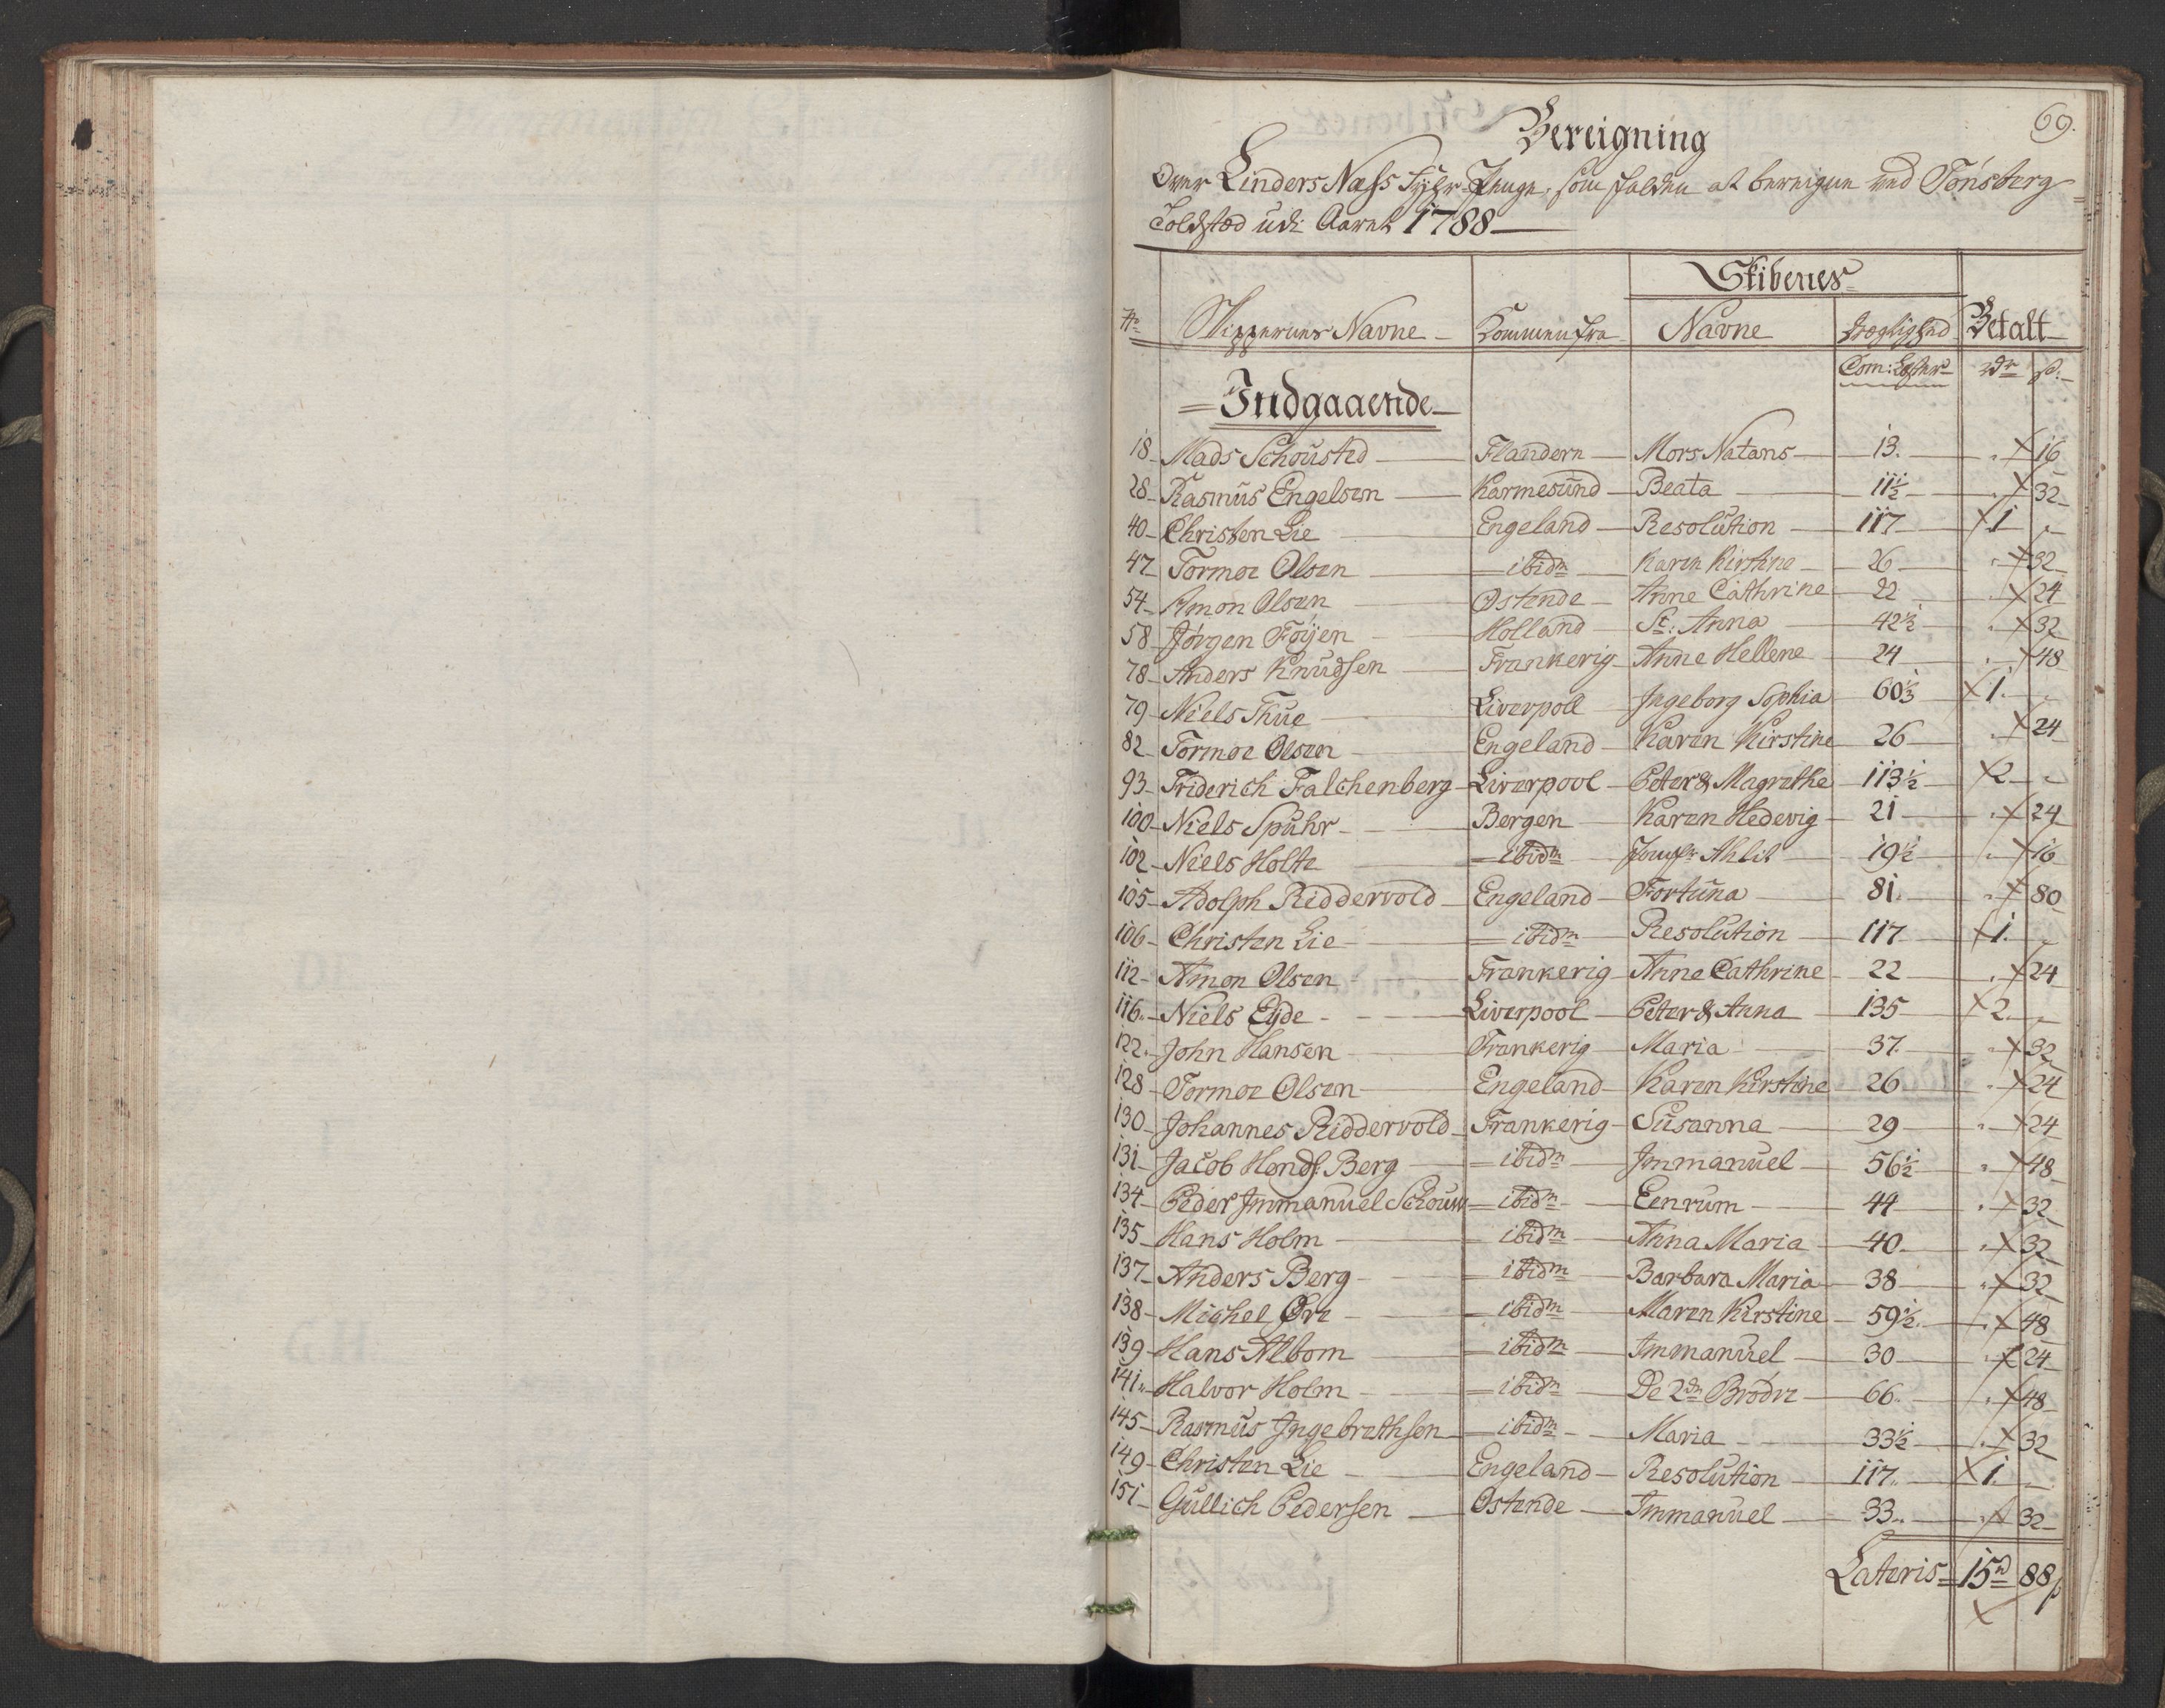 69.
Bereigning
Over Linders Næss Fyhr-Penge, som falden at bereigne ved Tönsberg
Toldsted udi Aaret 1788
Skibenes
No Skippernes Navne Kommen fra Navne Drægtighed Betalt
Com: Lester rdr s:
Indgaaende
18 Mads Schousted Flandern Mors Natans 13. 16
28 Rasmus Engelsen Karmesund Beata 11½ 32
40 Christen Lie Engeland Resolution 117 1
47 Tormoe Olsen ibidm Karen Kirstine 26 32
54 Amon Olsen Ostende Anne Cathrine 22 24
58 Jörgen Föyen Holland St: Anna 42½ 32
78 Anders Knudsen Frankerig Anne Hellene 24 48
79 Niels Thue Liverpoll Ingeborg Sophia 60⅓ 1.
82 Tormoe Olsen Engeland Karen Kirstine 26 24
93 Friderich Falchenberg Liverpool Peter & Magrethe 113½ 2
100 Niels Spuhr Bergen Karen Hedevig 21 24
102 Niels Holte ibidm Jomfr Ahlit 19½ 16
105 Adolph Riddervold Engeland Fortuna 81. 80
106 Christen Lie ibidm Resolution 117 1.
112 Amon Olsen Frankerig Anne Cathrine 22 24
116. Niels Eyde Liverpool Peter & Anna 135 2.
122. John Hansen Frankerig Maria 37. 32
128 Tormoe Olsen Engeland Karen Kirstine 26 24
130 Johannes Riddervold Frankerig Susanna 29 24
131 Jacob Hends: Berg ibidm Immanuel 56½ 48
134 Peder Immanuel Schouw ibidm Eenrum 44 32
135 Hans Holm ibidm Anna Maria 40 32
137 Anders Berg ibidm Barbara Maria 38 32
138 Michel Øre ibidm Maren Kirstine 59½. 48
139 Hans Albom ibidm Immanuel 30 24
141 Halvor Holm ibidm De 2de Brödre 66. 48
145 Rasmus Ingebrethsen ibidm Maria 33½ 32
149 Christen Lie Engeland Resolution 117. 1.
151 Gullich Pedersen Ostende Immanuel 33. 32
Lateris 15rd 88s